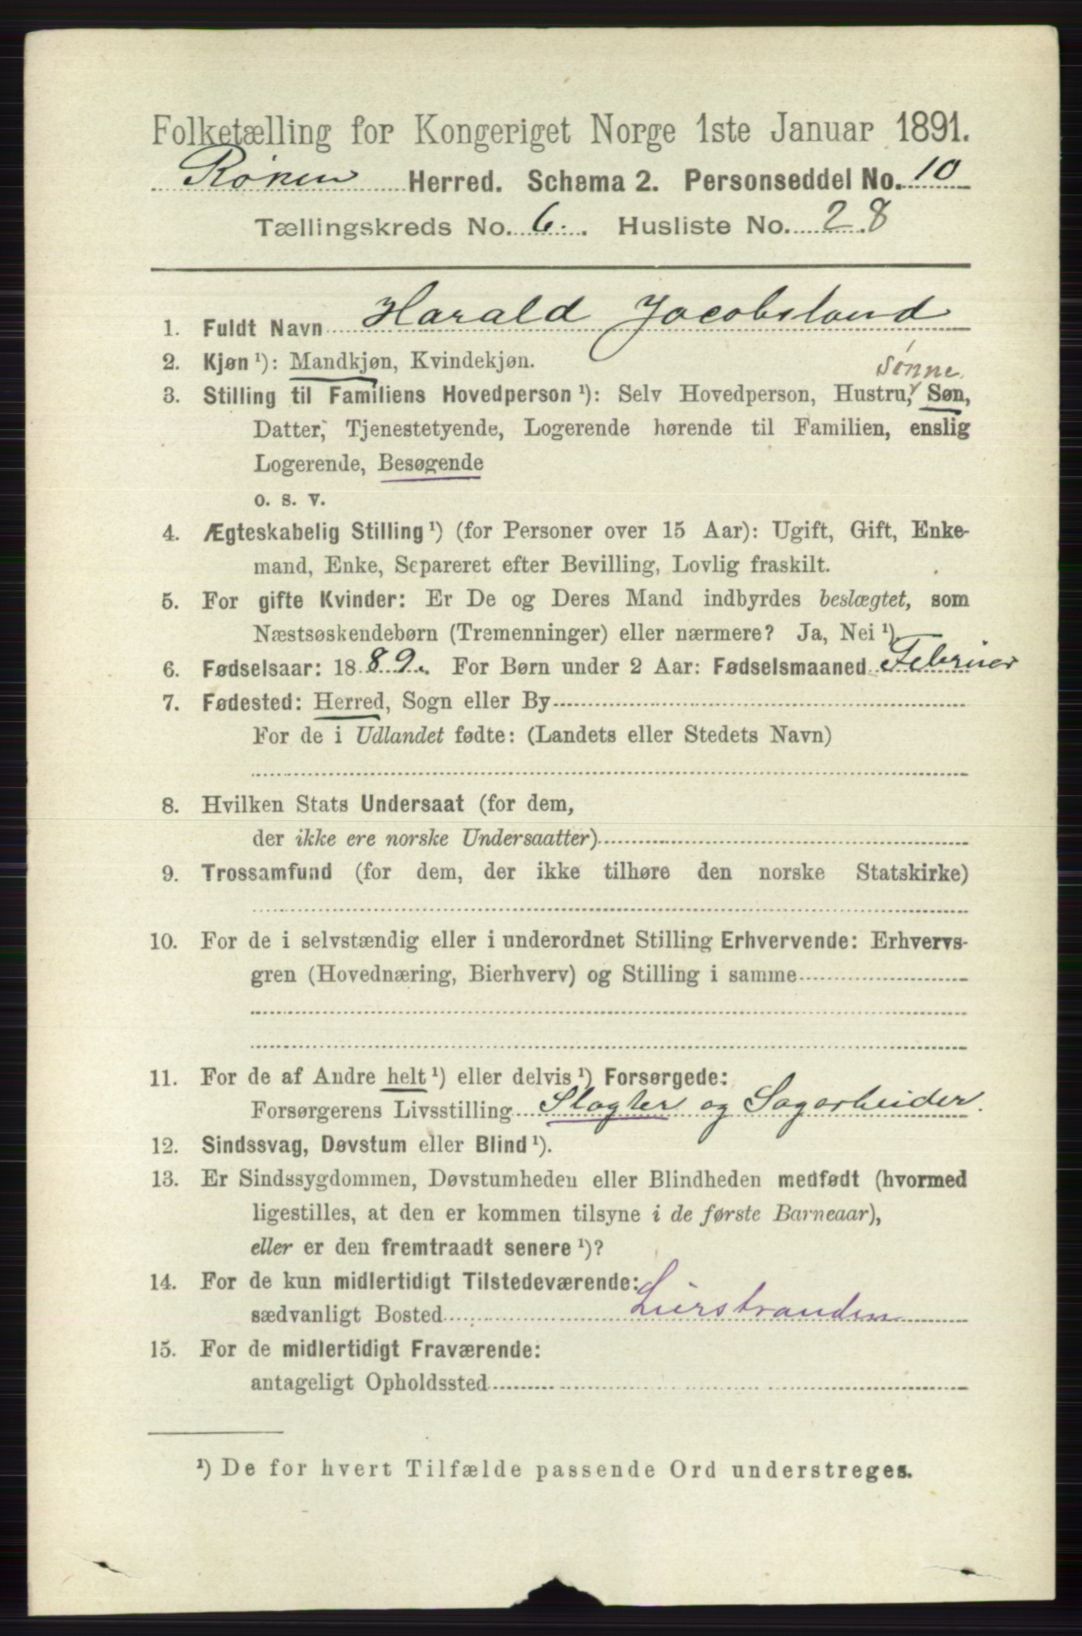 Folketælling for Kongeriget Norge 1ste Januar 1891.
Røken Herred. Schema 2. Personseddel No. 10
Tællingskreds No. 6. Husliste No. 28
1. Fuldt Navn Harald Jacobsland
2. Kjøn ¹): Mandkjøn, Kvindekjøn.
Sønne
3. Stilling til Familiens Hovedperson ¹): Selv Hovedperson, Hustru, Søn,
Datter, Tjenestetyende, Logerende hørende til Familien, enslig
Logerende, Besøgende
o. s. v.
4. Ægteskabelig Stilling ¹) (for Personer over 15 Aar): Ugift, Gift, Enke-
mand, Enke, Separeret efter Bevilling, Lovlig fraskilt.
5. For gifte Kvinder: Er De og Deres Mand indbyrdes beslægtet, som
Næstsøskendebørn (Tremenninger) eller nærmere? Ja, Nei ¹).
6. Fødselsaar: 1889. For Børn under 2 Aar: Fødselsmaaned Februar
7. Fødested: Herred, Sogn eller By
For de i Udlandet fødte: (Landets eller Stedets Navn)
8. Hvilken Stats Undersaat (for dem,
der ikke ere norske Undersaatter)
9. Trossamfund (for dem, der ikke tilhøre den norske Statskirke)
10. For de i selvstændig eller i underordnet Stilling Erhvervende: Erhvervs-
gren (Hovednæring, Bierhverv) og Stilling i samme
11. For de af Andre helt ¹) eller delvis ¹) Forsørgede:
Forsørgerens Livsstilling Slagter og Sagarbeider.
12. Sindssvag, Døvstum eller Blind ¹).
13. Er Sindssygdommen, Døvstumheden eller Blindheden medfødt (hvormed
ligestilles, at den er kommen tilsyne i de første Barneaar),
eller er den fremtraadt senere ¹)?
14. For de kun midlertidigt Tilstedeværende:
sædvanligt Bosted Lierstranden
15. For de midlertidigt Fraværende:
antageligt Opholdssted
¹) De for hvert Tilfælde passende Ord understreges.